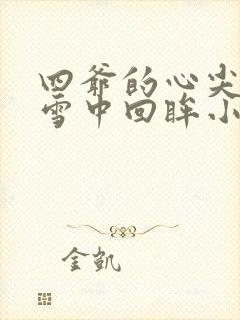 四爷的心尖
雪中回眸小
金凯